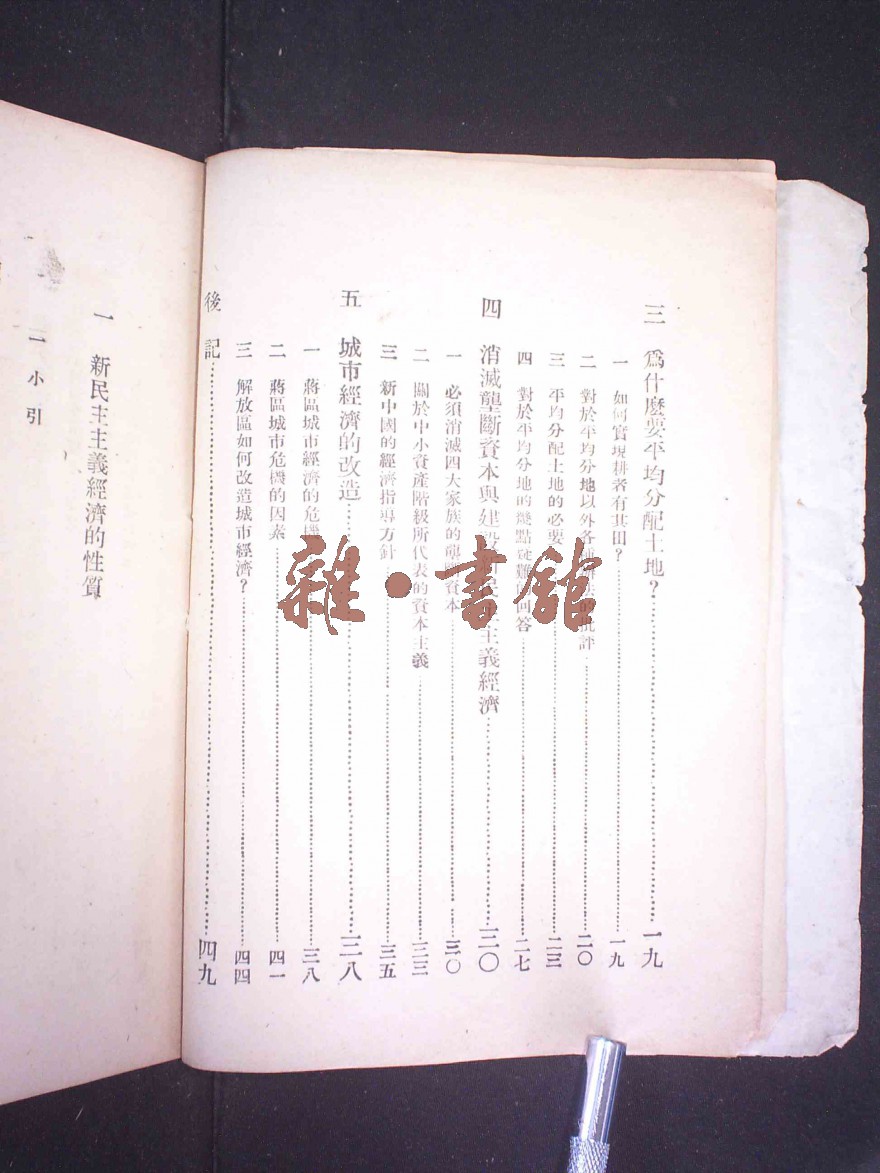 三 爲什麼要平均分配土地?……一九
一 如何實現耕者有其田?……一九
二 對於平均分地以外各種辦法的批評……二〇
三 平均分配土地的必要……二三
四 對於平均分地的幾點疑難回答……二七
四 消滅壟斷資本與建設新民主主義經濟……三〇
一 必須消滅四大家族的壟斷資本……三〇
二 關於中小資產階級所代表的資本主義……三三
三 新中國的經濟指導方針……三五
五 城市經濟的改造……三八
一 蔣區城市經濟的危機……三八
二 蔣區城市危機的因素……四一
三 解放區如何改造城市經濟?……四四
後記……四九
一 新民主主義經濟的性質
一 小引
雜·書館